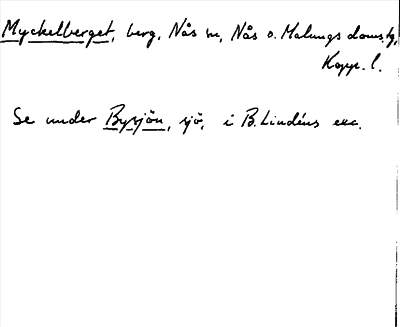 Myckelberget, berg, Nås sn, Nås o. Malungs doms.,
Kopp. l.
Se under Bysjön, sjö, i B. Lindéns exc.